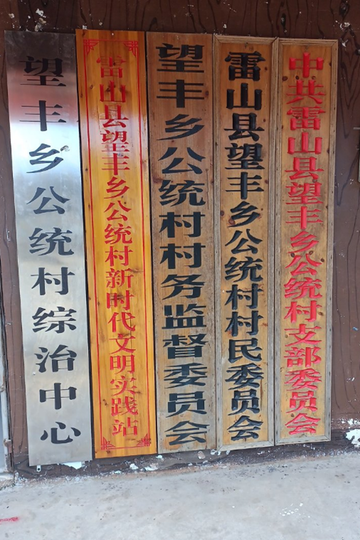 望丰乡公统村综治中心
雷山县望丰乡公统村新时代文明实践站
望丰乡公统村村务监督委员会
雷山县望丰乡公统村村民委员会
中共雷山县望丰乡公统村支部委员会